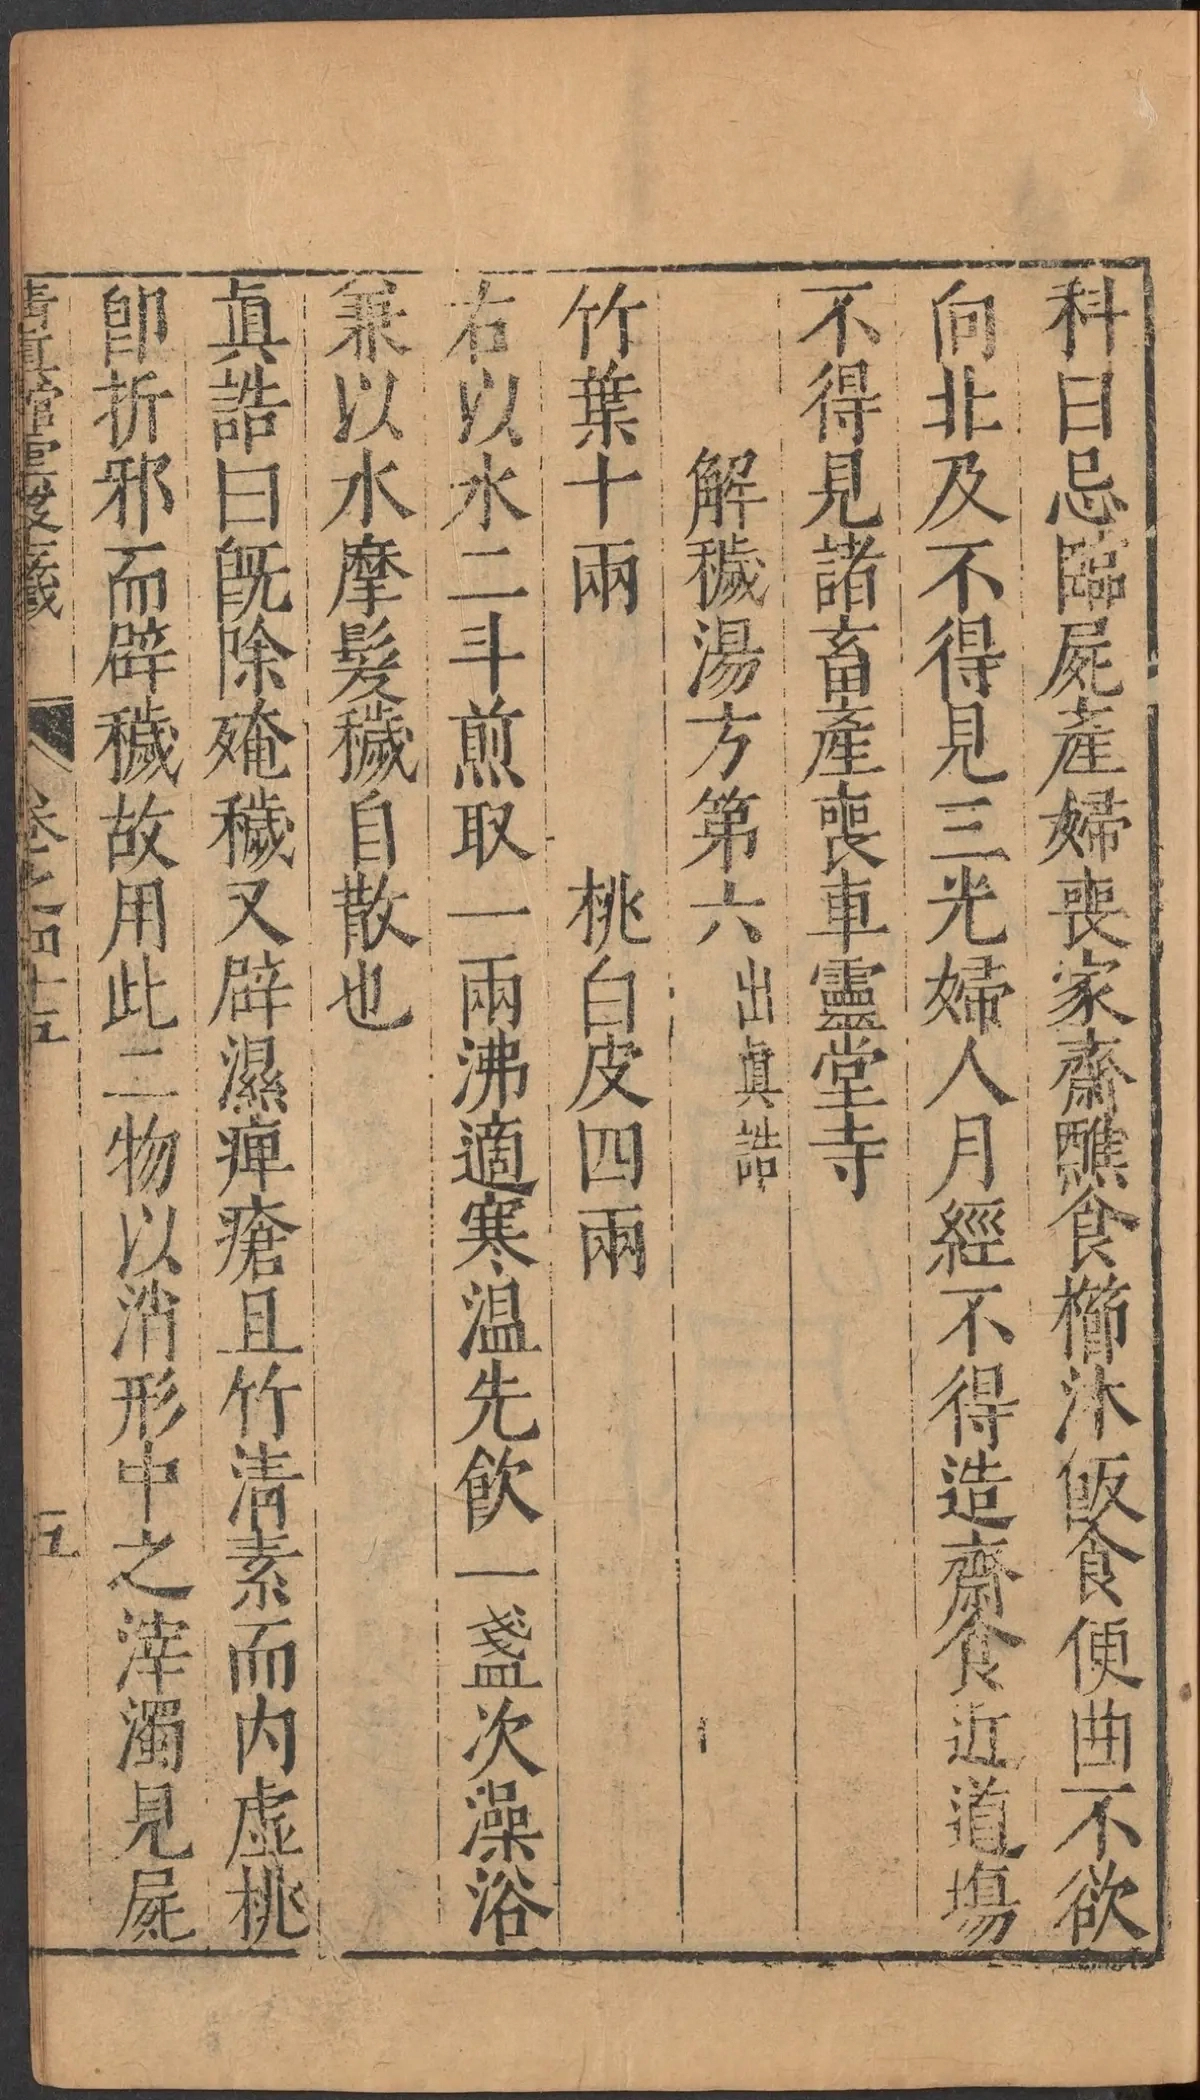 科曰忌臨屍產婦喪家齋醮食櫛沐飯食便曲不欲
向北及不得見三光婦人月經不得造齋食近道場
不得見諸畜產喪車靈堂寺
解穢湯方第六出眞誥
竹葉十兩 桃白皮四兩
右以水二斗煎取一兩沸適寒温先飲一盞次澡浴
兼以水摩髮穢自散也
眞誥曰旣除殗穢又辟濕痺瘡且竹清素而内虛桃
卽折邪而辟穢故用此二物以消形中之滓濁見屍
卷之四十五
五